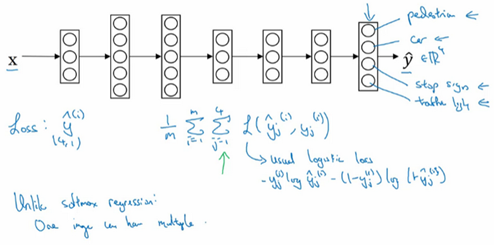 pedestrian ←
car ←
x
ŷ ∈ℝ⁴
stop sign ←
traffic light ←
Loss: ŷ^(i)
(4,1)
1/m Σ_{i=1}^{m} Σ_{j=1}^{4} L(ŷ_j^(i), y_j^(i))
↳ usual logistic loss
-y_j^(i) log ŷ_j^(i) - (1-y_j^(i)) log (1-ŷ_j^(i))
Unlike softmax regression:
One image can have multiple